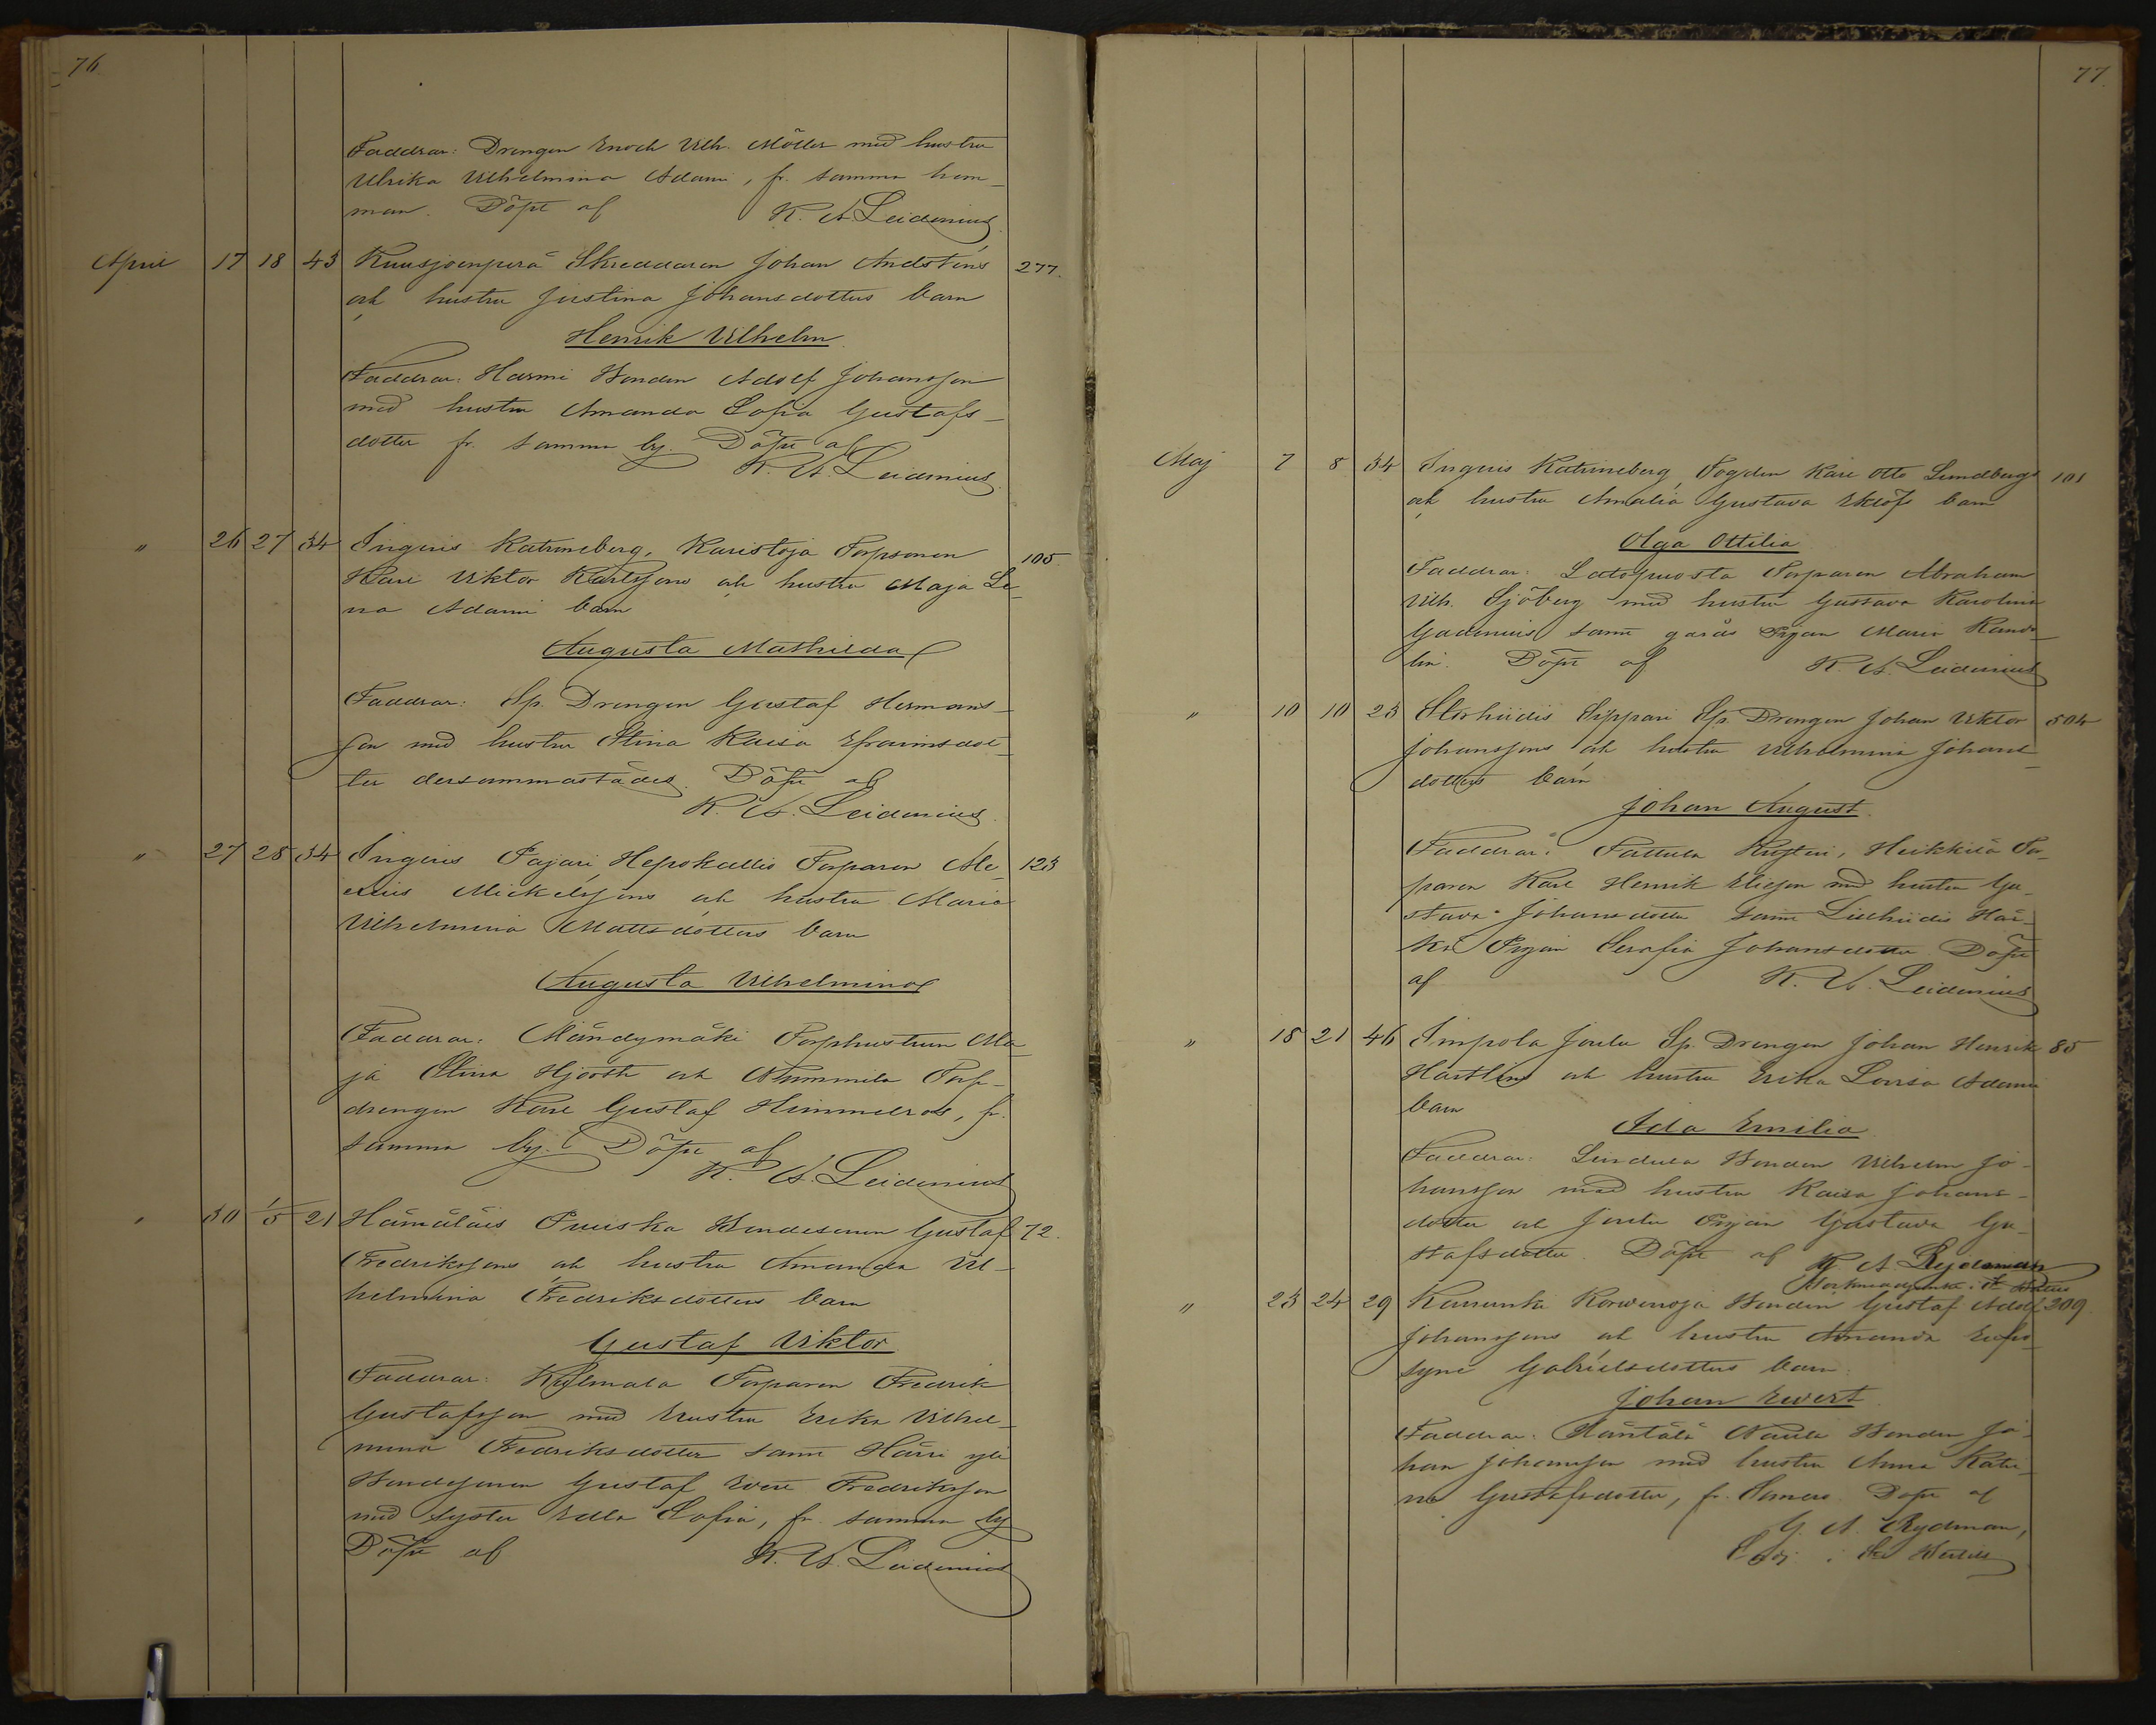 76.
Faddrar: Drengen Enoch Vilh. Möller med hustru
Ulrika Vilhelmina Adami, fr. samma hem-
man. Döpt af K. A. Leidenius
April 17 18 43 Kuusjoenperä Skreddaren Johan Andsténs 277.
och hustru Justina Johansdotters barn
Henrik Vilhelm
Faddrar: Harmi Bonden Adolf Johansson
med hustru Amanda Sofia Gustafs-
dotter fr. samma by. Döpt af
K. A. Leidenius.
" 26 27 34 Ingeris Katrineberg, Karistoja Torpsonen 105
Karl Viktor Karlssons och hustru Maja Le-
na Adami barn
Augusta Mathilda
Faddrar: Sp. Drengen Gustaf Hermans-
son med hustru Stina Kaisa Efraimsdot-
ter dersammastädes. Döpt af
K. A. Leidenius.
" 27 28 34 Ingeris Pajari, Hepokallio Torparen Ale- 123
exius Mickelssons och hustru Maria
Vilhelmina Mattsdotters barn
Augusta Vilhelmina
Faddrar: Mändymäki Torphustrun Ma-
ja Stina Hjorth och Nummila Torp-
drengen Karl Gustaf Himmelros, fr.
samma by. Döpt af
K. A. Leidenius
" 30 1/5 21 Hämäläis Puiska Bondesonen Gustaf 72.
Fredrikssons och hustru Amanda Vil-
helmina Fredriksdotters barn
Gustaf Viktor
Faddrar: Kylmälä Torparen Fredrik
Gustafsson med hustru Erika Vilhel-
mina Fredriksdotter samt Härri yli
Bondesonen Gustaf Evert Fredriksson
med syster Edla Sofia, fr. samma by
Döpt af K. A. Leidenius
77.
Maj 7 8 34 Ingeris Katrineberg, Fogden Karl Otto Lundbergs 101
och hustru Amalia Gustava Eklöfs barn
Olga Ottilia
Faddrar: Torparen Abraham
Vilh. Sjöberg med hustru Gustava Karolina
Gadenius samt gårds Pigan Maria Rande-
lin. Döpt af K. A. Leidenius
" 10 10 23 Storhiidis Sippari Sp. Drengen Johan Viktor 504
Johanssons och hustru Vilhelmina Johans-
dotters barn
Johan August.
Faddrar: Pattula Heikkilä To-
rparen Karl Henrik Eliesson med hustru Gu-
stava Johansdotter samt Lillhiidis
Pigan Serafia Johansdotter Döpt
af K. A. Leidenius
" 18 21 46 Impola Joulu Sp. Drengen Johan Henrik 85
Hartlins och hustru Erika Lovisa Adami
barn
Ada Emilia
Faddrar: Lindula Bonden Vilhelm Jo-
hansson med hustru Kaisa Johans-
dotter och Joulu Pigan Gustava Gu-
stafsdotter. Döpt af
" 23 24 29 Kanunki Korvenoja Bonden Gustaf Adolf 309.
Johanssons och hustru Amanda Eufro-
syne Gabrielsdotters barn.
Johan Evert
Faddrar: Häntälä Naula Bonden Jo-
han Johansson med hustru Anna Katri-
na Gustafsdotter, fr. Somero. Döpt af
G. A. Rydman,
i